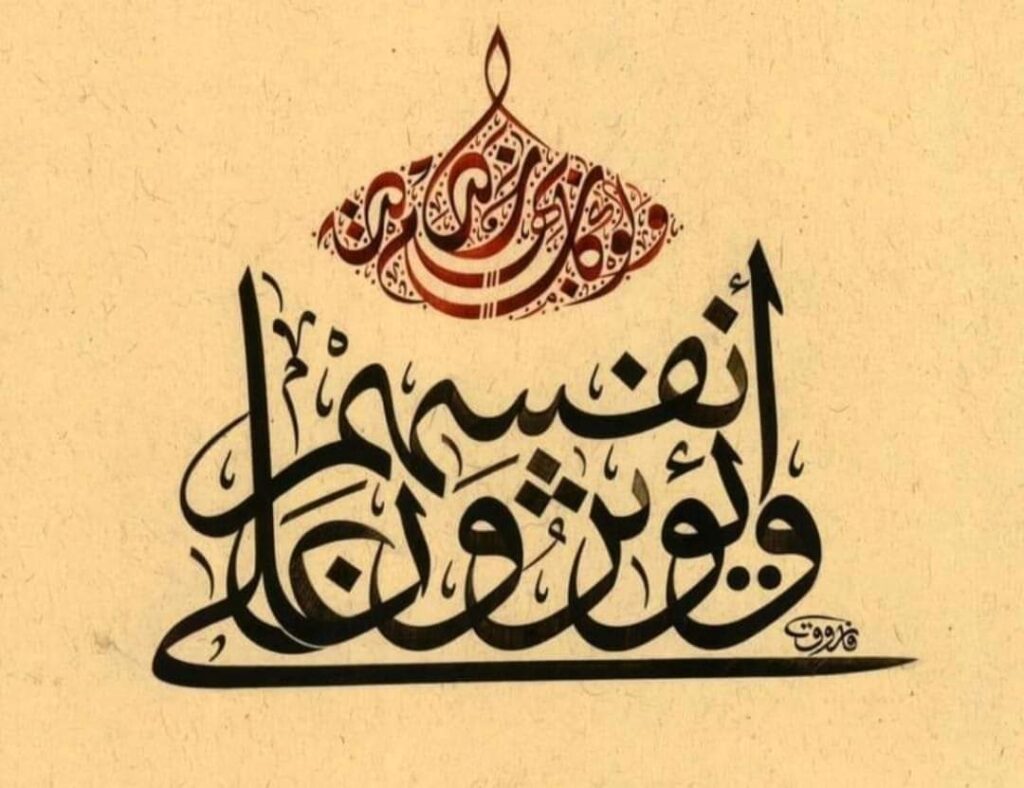 ويؤثرون على أنفسهم
ولو كان بهم خصاصة
فاروق